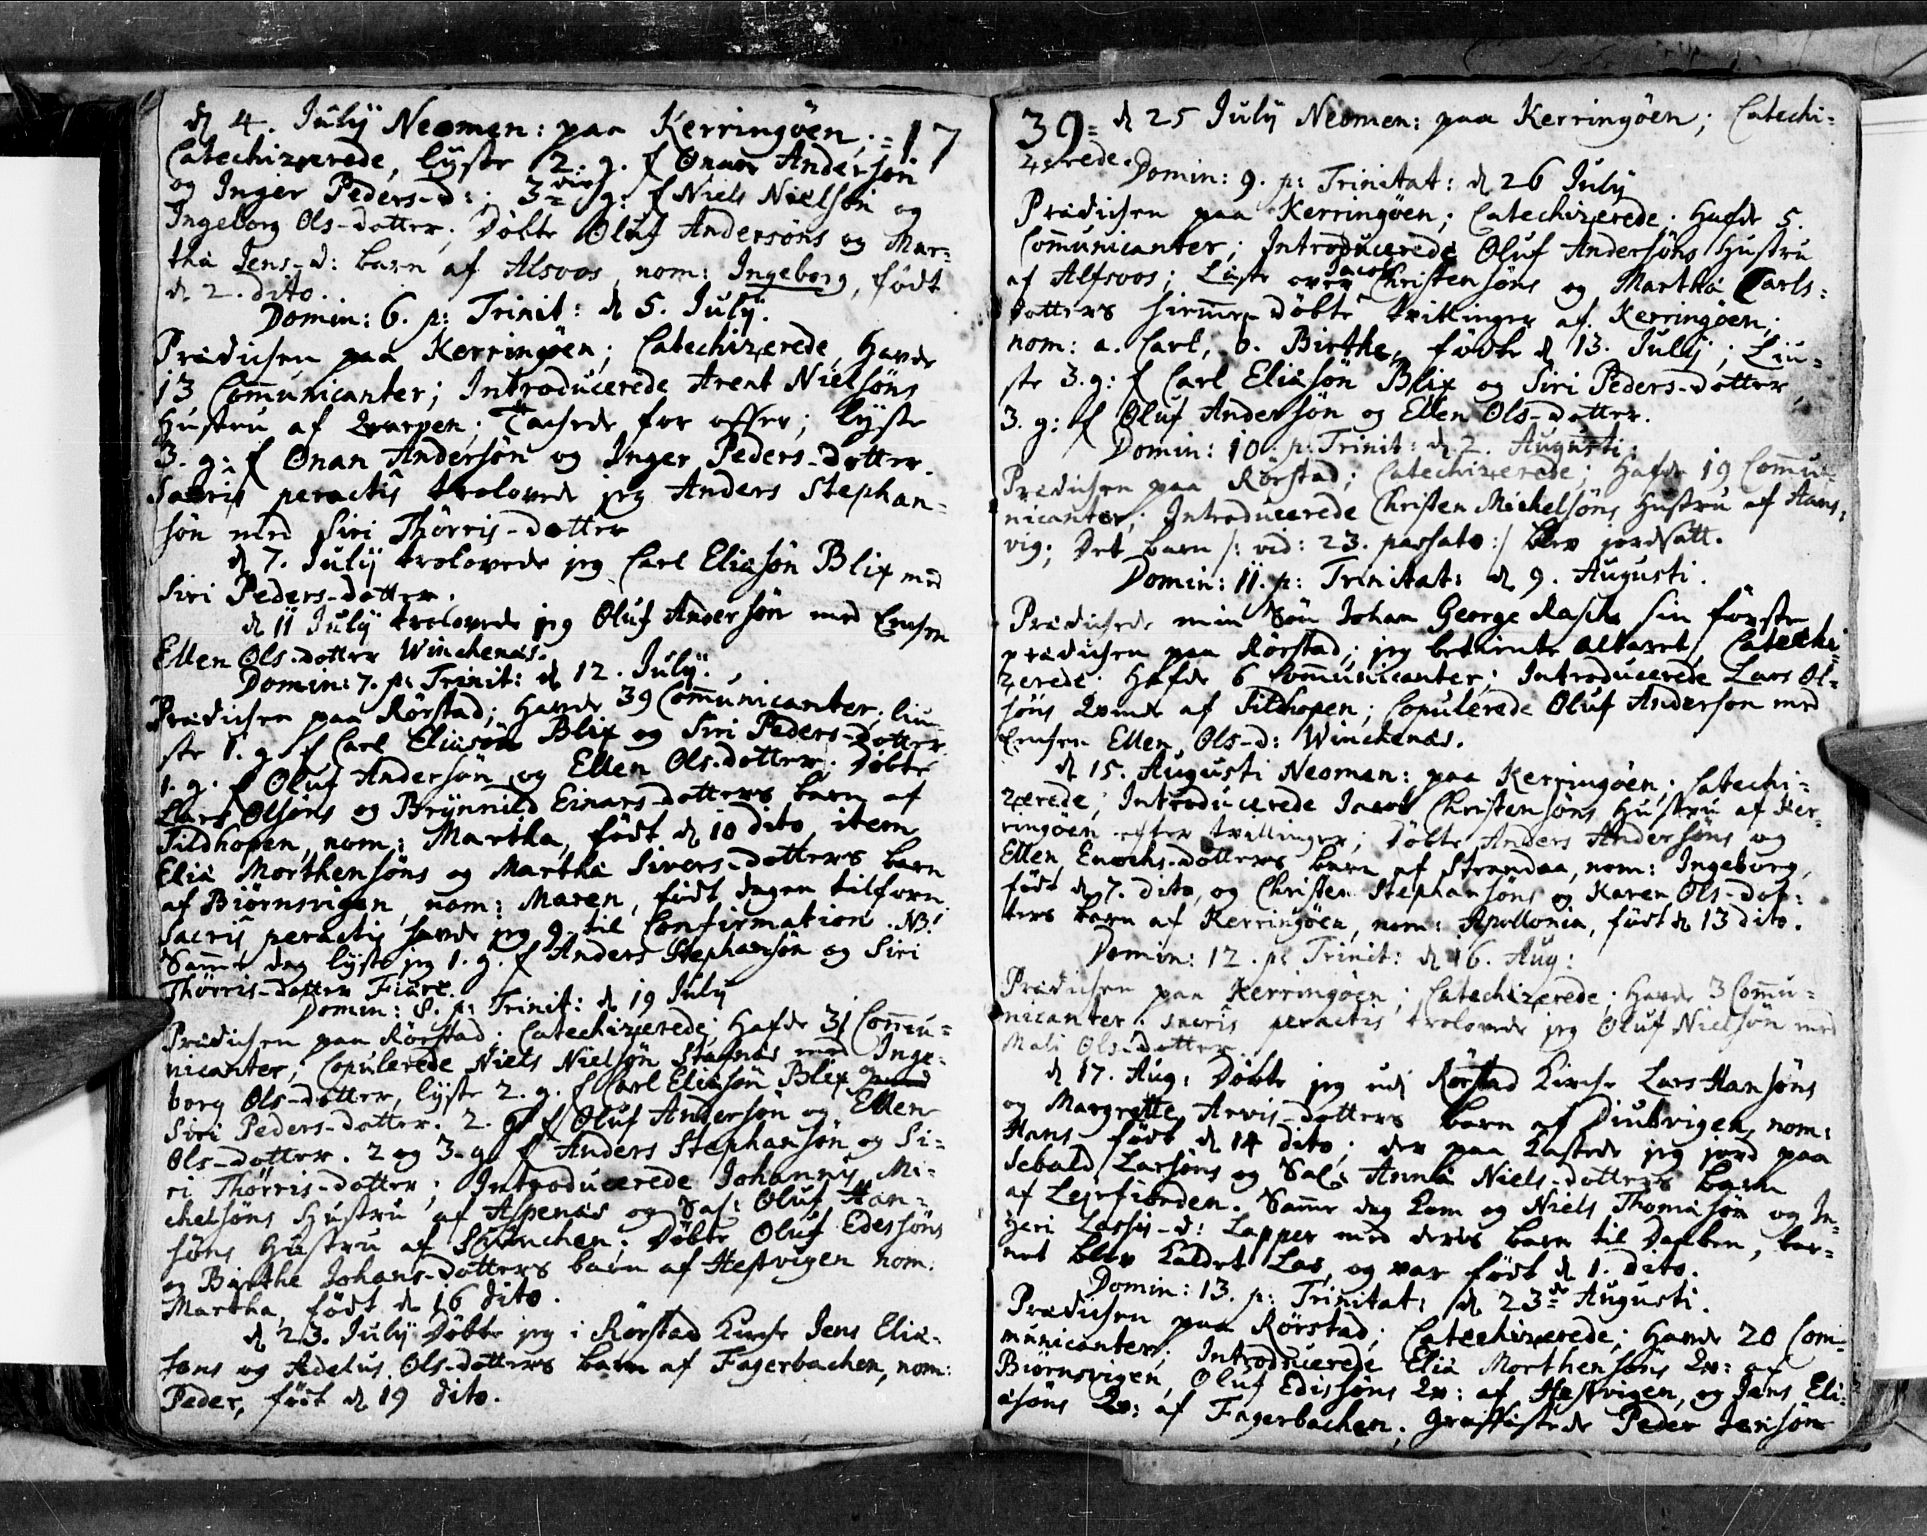 d 4. Julÿ Neomen: paa Kerringöen; = 17
Catechizerede, lyste 2. g. f Onan Andersön
og Inger Peders-d:; 3die g: f Niels Nielsön og
Ingeborg Ols-dotter; Döbte Oluf Andersöns og Mar-
tha Jens-d: barn af Alsvos, nom: Ingeborg, födt
d 2. dito.
Domin: 6. p: Trinit: d 5. Julÿ.
Prædichen paa Kerringöen; Catechizerede, Havde
13 Communicanter; Introducerede Arent Nielsöns
Hustru af Qvarpen; Tachede for offer; lyste
3. g: f Onan Andersön og Inger Peders-dotter.
Sacris peractis trolovede jeg Anders Stephan-
sön med Siri Thörris-dotter
d 7. Julÿ trolovede jeg Carl Eliasön Blix med
Siri Peders-dotter.
d 11 Julÿ trolovede jeg Oluf Andersön med Enchen
Ellen Ols-dotter Winchenæs.
Domin: 7. p: Trinit: d 12. Julÿ.
Prædichen paa Rörstad; Havde 39 Communicanter; liu-
ste 1. g. f Carl Eliasön Blix og Siri Peders-dotter
1. g. f Oluf Andersön og Ellen Ols-dotter; Döbte
Lars Olsöns og Brÿnnild Einars-dotters barn af
Tildhopen, nom: Martha, födt d 10 dito, item
Elia Morthensöns og Martha Sivers-dotters barn
af Biörnsvigen, nom: Maren, födt dagen tilforn.
Sacris peractis havde jeg 9 til Confirmation. NB!
Samme dag lyste jeg 1. g. f Anders Stephansön og Siri
Thörris-dotter Fiære.
Domin: 8. p: Trinit: d 19 Julÿ
Prædichen paa Rörstad; Catechizerede; Hafde 31 Commu-
nicanter; Copulerede Niels Nielsön Stafnæs med Inge-
borg Ols-dotter, lyste 2. g. f Carl Eliasön Blix og
Siri Peders-dotter. 2. g f Oluf Andersön og Ellen
Ols-dotter. 2 og 3. g. f Anders Stephansön og Si-
ri Thörris-dotter; Introducerede Johannis Mi-
chelsöns Hustru af Aspenæs og Sal: Oluf Han-
söns Hustru af; Döbte Oluf Edissöns
og Birthe Johans-dotters barn af Hestvigen nom:
Martha, födt d 16 dito.
d 23. Julÿ Döbte jeg i Rörstad Kirche Jens Elia-
söns og Adelus Ols-dotters barn af Fagerbachen, nom:
Peder, födt d 19 dito.
39 = d 25 Julÿ Neomen: paa Kerringöen; Catechi-
zerede.
Domin: 9. p: Trinitat: d 26 Julÿ
Prædichen paa Kerringöen; Catechizerede; Hafde 5.
Communicanter; Introducerede Oluf Andersöns Hustru
af Alfsvos; Læste over Jacob Christensöns og Martha Carls-
dotters hiemme-döbte tvillinger af Kerringöen;
nom: a. Carl, b. Birthe, födte d 13. Julÿ; Liu-
ste 3. g: f Carl Eliasön Blix og Siri Peders-dotter
3. g: f Oluf Andersön og Ellen Ols-dotter.
Domin: 10. p: Trinit: d 2. Augusti.
Prædichen paa Rörstad; Catechizerede; Hafde 19 Commu-
nicanter; Introducerede Christen Michelsöns Hustru af Hans-
vig; Det barn /: vid: 23. passato :/ blev jordsatt.
Domin: 11. p: Trinitat: d 9. Augusti.
Prædichede min Sön Johan George Rasch sin förste
prædichen paa Rörstad; jeg betiente altaret, Catechi-
zerede; Hafde 6 Communicanter; Introducerede Lars Ol-
söns Qvinde af Tildhopen; Copulerede Oluf Andersön med
Enchen Ellen Ols-d: Winchenæs.
d 15. Augusti Neomen: paa Kerringöen; Catechi-
zerede; Introducerede Jacob Christensöns Hustru af Ker-
ringöen efter tvillinger; Döbte Anders Andersöns og
Ellen Enochs-dotters barn af Strandaa, nom: Ingeborg,
födt d 7. dito, og Christen Stephansöns og Karen Ols-dot-
ters barn af Kerringöen, nom: Apollonia, födt d 13 dito.
Domin: 12. p: Trinit: d 16. Aug:
Prædichen paa Kerringöen; Catechizerede; Havde 3 Commu-
nicanter. Sacris peractis trolovede jeg Oluf Nielsön med
Mali Ols-dotter
d 17. Aug: Döbte jeg udi Rörstad Kirche Lars Hansöns
og Margrette Arvis-dotters barn af Diubvigen, nom:
Hans födt d 14 dito; der paa kastede jeg jord paa
Sebald Larsöns og Sal: Anna Niels-dotters barn
af Leirfiorden. Samme dag kom og Niels Thomasön og In-
geri Lasses-d: Lapper med deris barn til Daaben, bar-
net blev kaldet Las, og var födt d 1. dito.
Domin: 13. p: Trinitat: d 23de Augusti.
Prædichen paa Rörstad; Catechizerede; Havde 20 Com-
municanter; Introducerede Elia Morthensöns Qv: af
Biörnsvigen, Oluf Edissöns Qv: af Hestvigen, og Jens Eli-
asöns Qv: af Fagerbachen; Graffæstede Peder Jensön